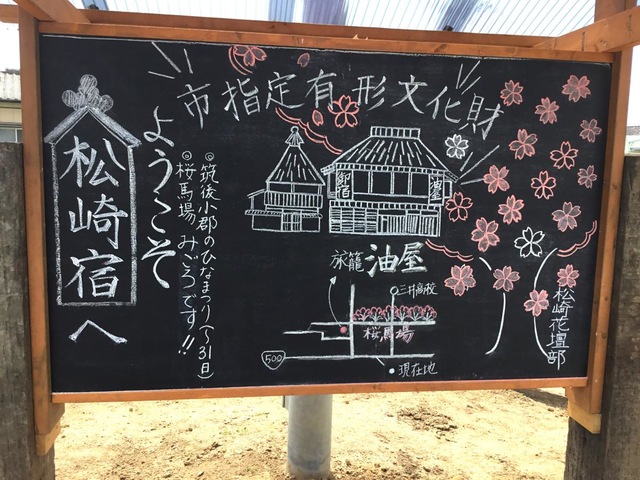 市指定有形文化財
松崎宿へ
ようこそ
◎筑後小郡のひなまつり(〜31日)
◎桜馬場 みごろです!!
御宿
油屋
旅籠 油屋
三井高校
桜馬場
500
現在地
松崎花壇部